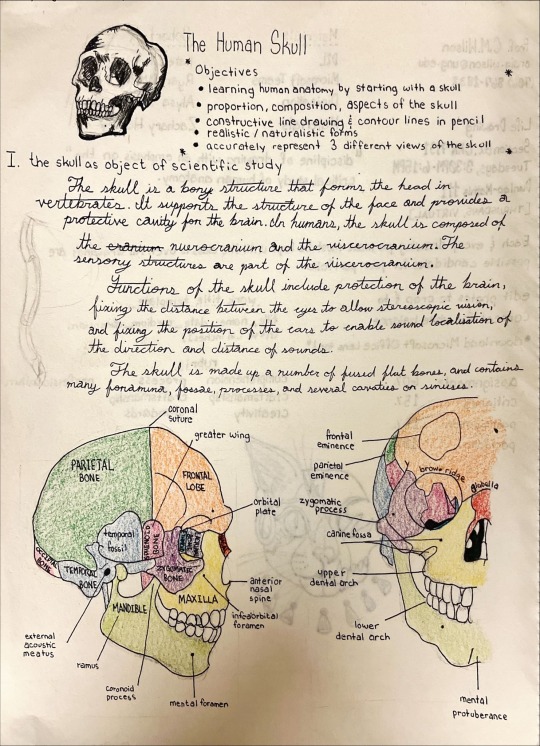 The Human Skull
* Objectives *
• learning human anatomy by starting with a skull
• proportion, composition, aspects of the skull
• constructive line drawing & contour lines in pencil
• realistic / naturalistic forms
• accurately represent 3 different views of the skull
* *
I. the skull as object of scientific study
The skull is a bony structure that forms the head in
vertebrates. It supports the structure of the face and provides a
protective cavity for the brain. In humans, the skull is composed of
the cranium nuerocranium and the viscerocranium. The
sensory structures are part of the viscerocranium.
Functions of the skull include protection of the brain,
fixing the distance between the eyes to allow stereoscopic vision,
and fixing the position of the ears to enable sound localisation of
the direction and distance of sounds.
The skull is made up a number of fused flat bones, and contains
many foramina, fossae, processes, and several cavities or sinuses.
coronal
suture
greater wing
PARIETAL
BONE
FRONTAL
LOBE
orbital
plate
temporal
fossil
SPHENOID
BONE
OCCIPITAL
BONE
TEMPORAL
BONE
ZYGOMATIC
BONE
MAXILLA
MANDIBLE
anterior
nasal
spine
infraorbital
foramen
external
acoustic
meatus
ramus
coronoid
process
mental foramen
frontal
eminence
parietal
eminence
brow ridge
glabella
zygomatic
process
canine fossa
upper
dental arch
lower
dental arch
mental
protuberance